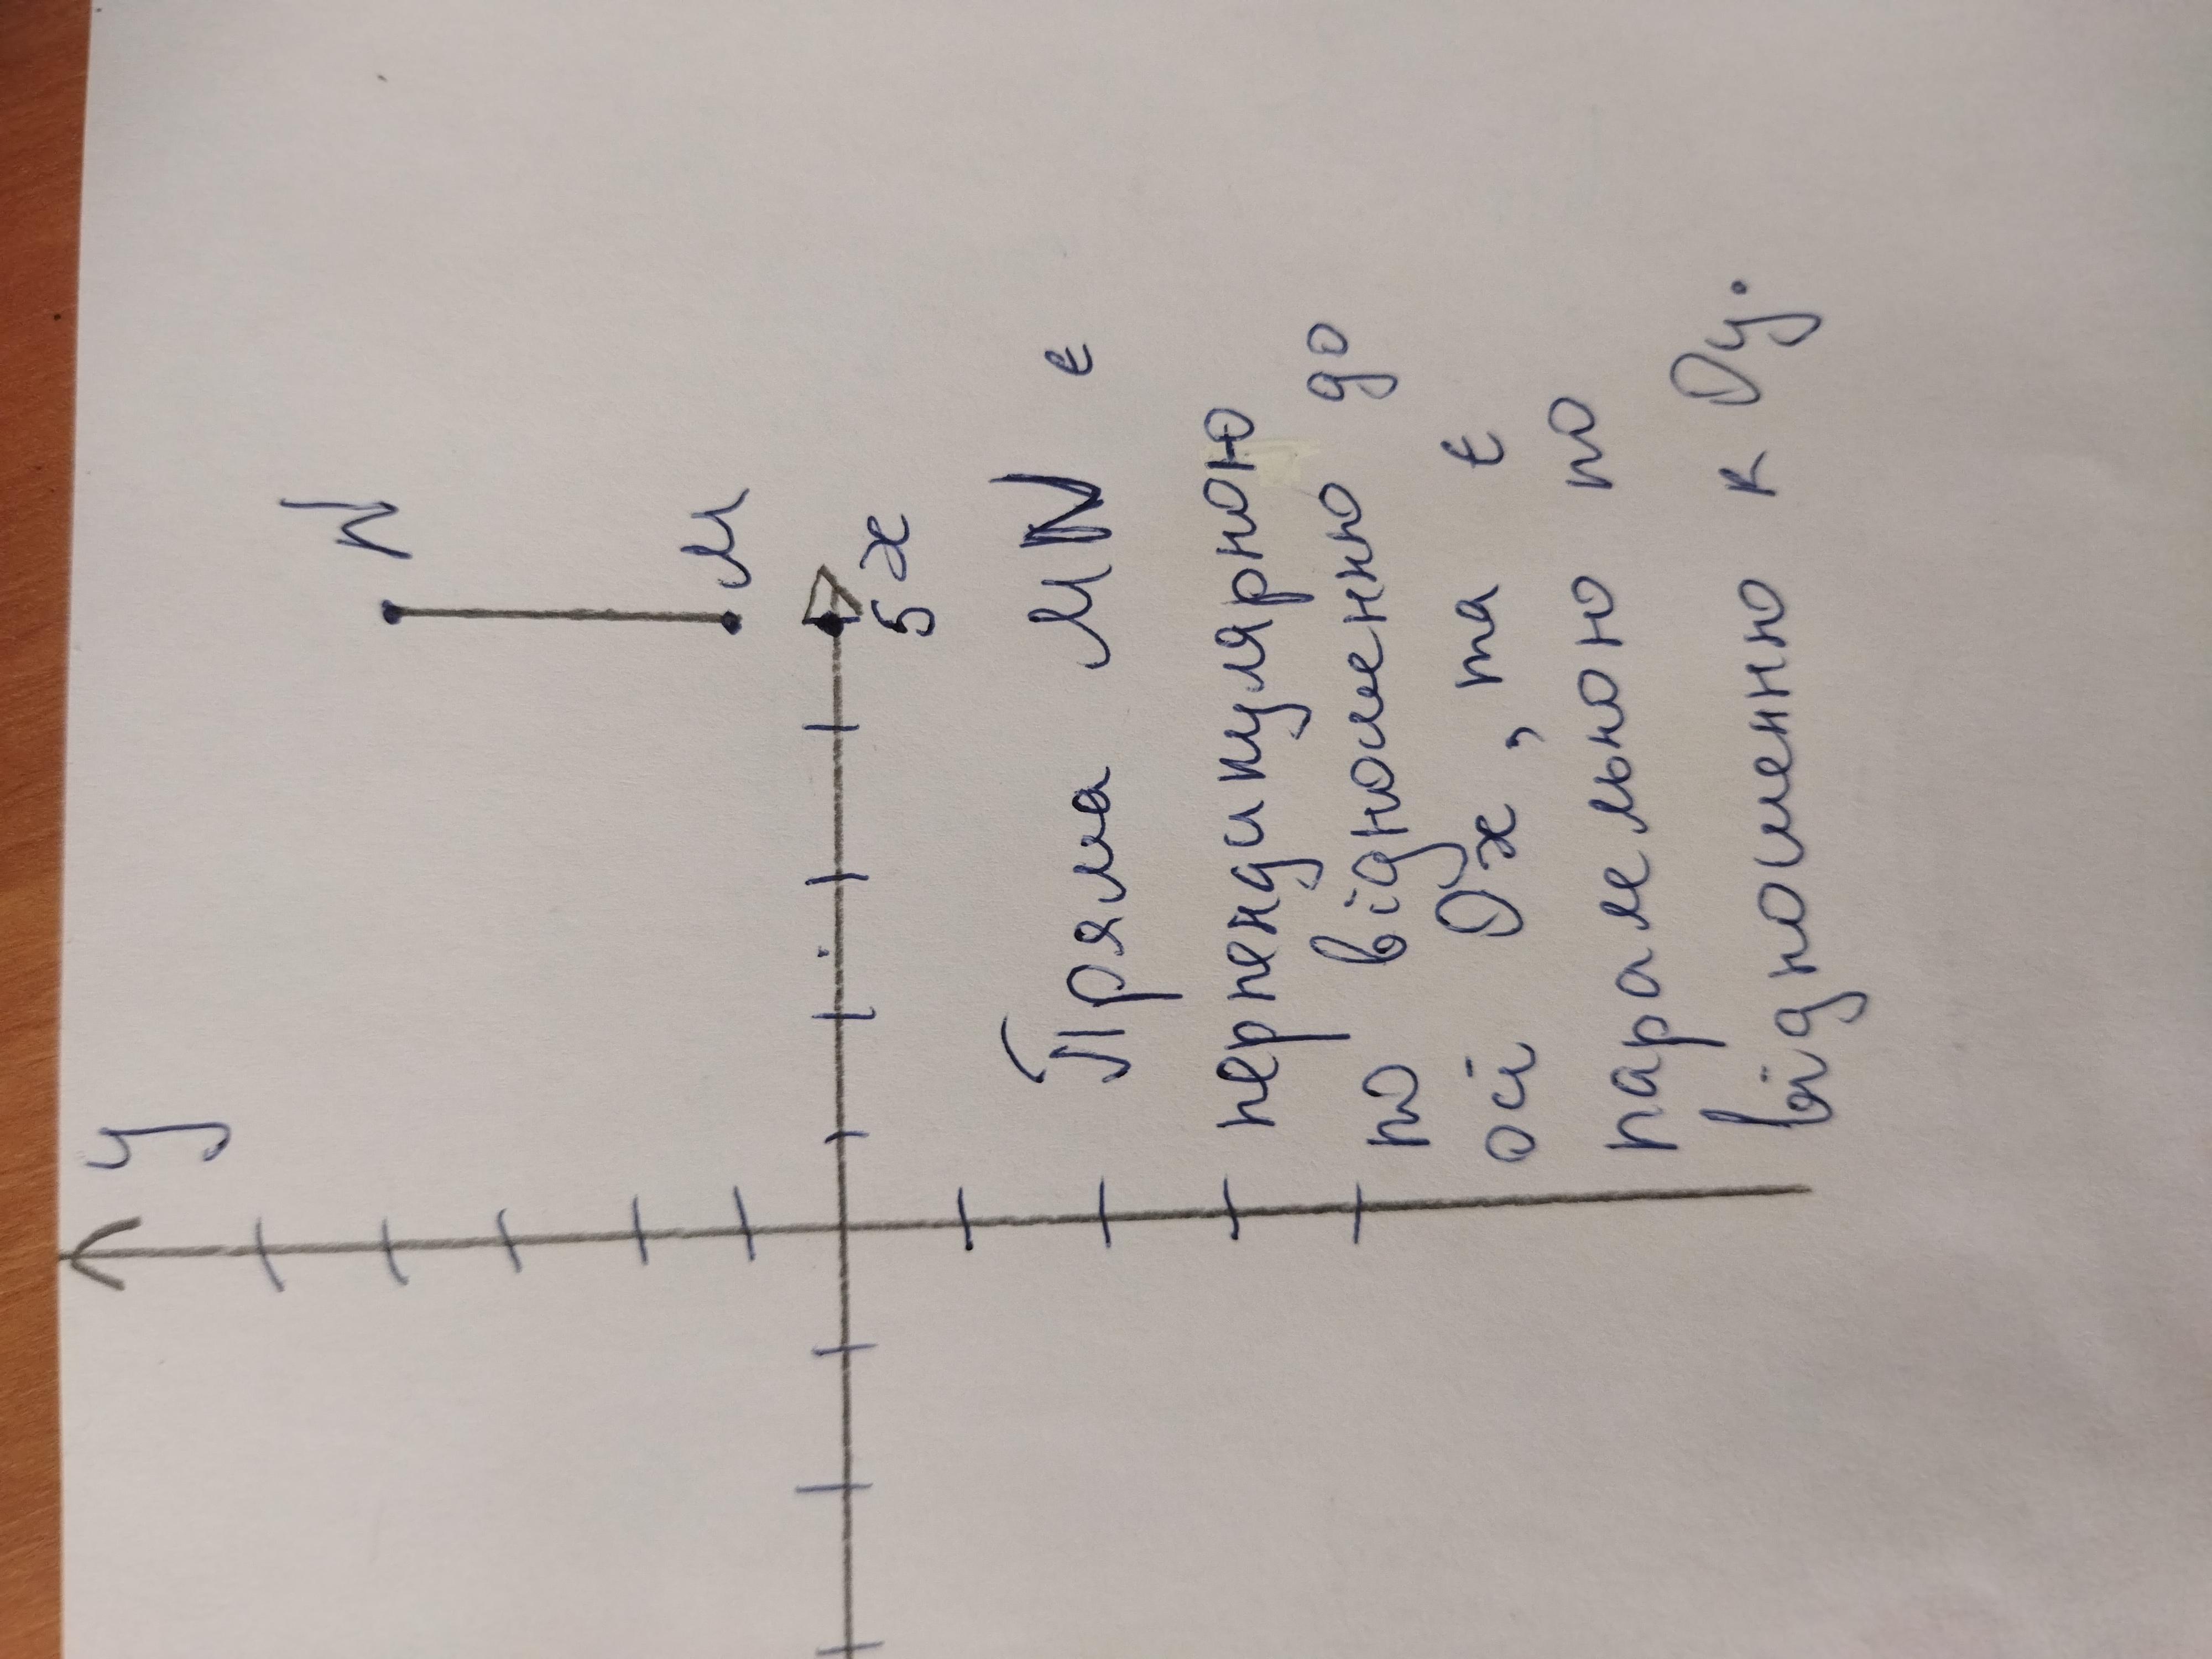 y
N
M
5 x
Пряма MN є
перпендикулярною
по відношенню до
осі Ox, та є
паралельною по
відношенню к Oy.